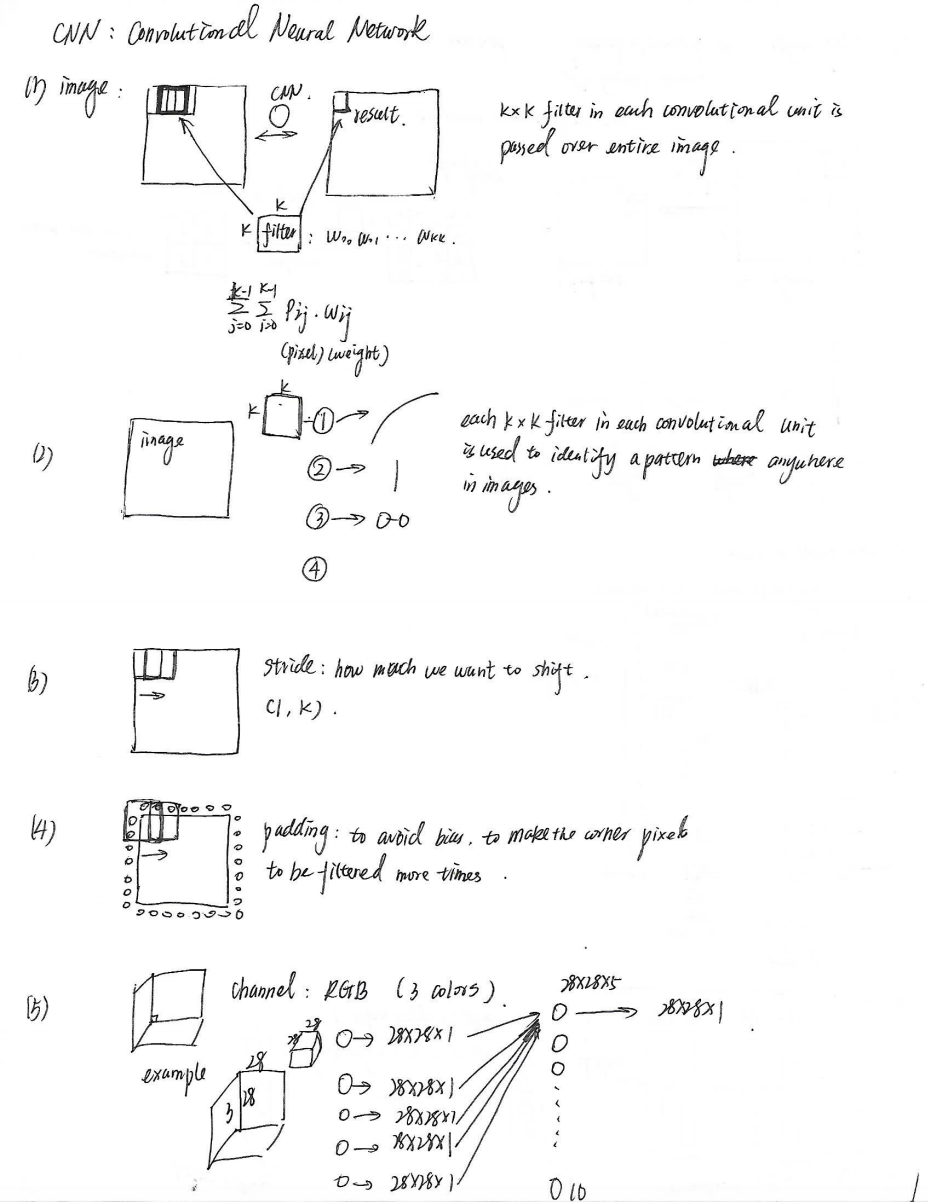 CNN : Convolutional Neural Network
(1) image :
CNN.
result.
K×K filter in each convolutional unit is
passed over entire image .
K
K filter : W00 W01 ··· WKK .
K-1 K-1
Σ Σ Pij · Wij
j=0 i=0
(pixel) (weight)
(2)
image
K
K
①
②
③
④
each K×K filter in each convolutional unit
is used to identify a pattern where anywhere
in images .
(3)
stride : how much we want to shift .
(1, K) .
(4)
padding : to avoid bias, to make the corner pixels
to be filtered more times .
(5)
channel : RGB (3 colors) .
example
28
28
3
28
28
28×28×1
28×28×1
28×28×1
28×28×1
28×28×1
28×28×5
28×28×1
10
1